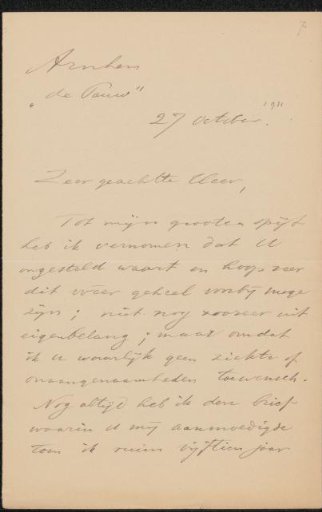 7
Arnhem
"de Pauw"
27 October '91.
Zeer geachte Heer,
Tot mijn grooten spijt
heb ik vernomen dat U
ongesteld waart en hoop zeer
dit weer geheel voorbij moge
zijn; niet nog zoozeer uit
eigenbelang; maar omdat
ik U waarlijk geen ziekte of
onaangenaamheden toewensch.
Nog altijd heb ik den brief
waarin U mij aanmoedigde
toen ik ruim vijftien jaar